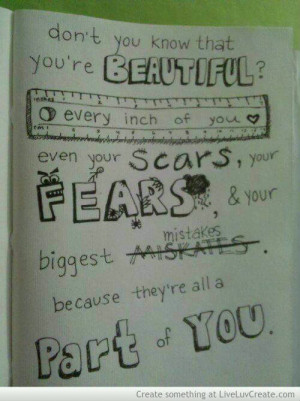 don't you know that
you're BEAUTIFUL?
every inch of you
even your scars, your
FEARS, & your
mistakes
biggest MISKATES.
because they're all a
Part of YOU.
Create something at LiveLuvCreate.com